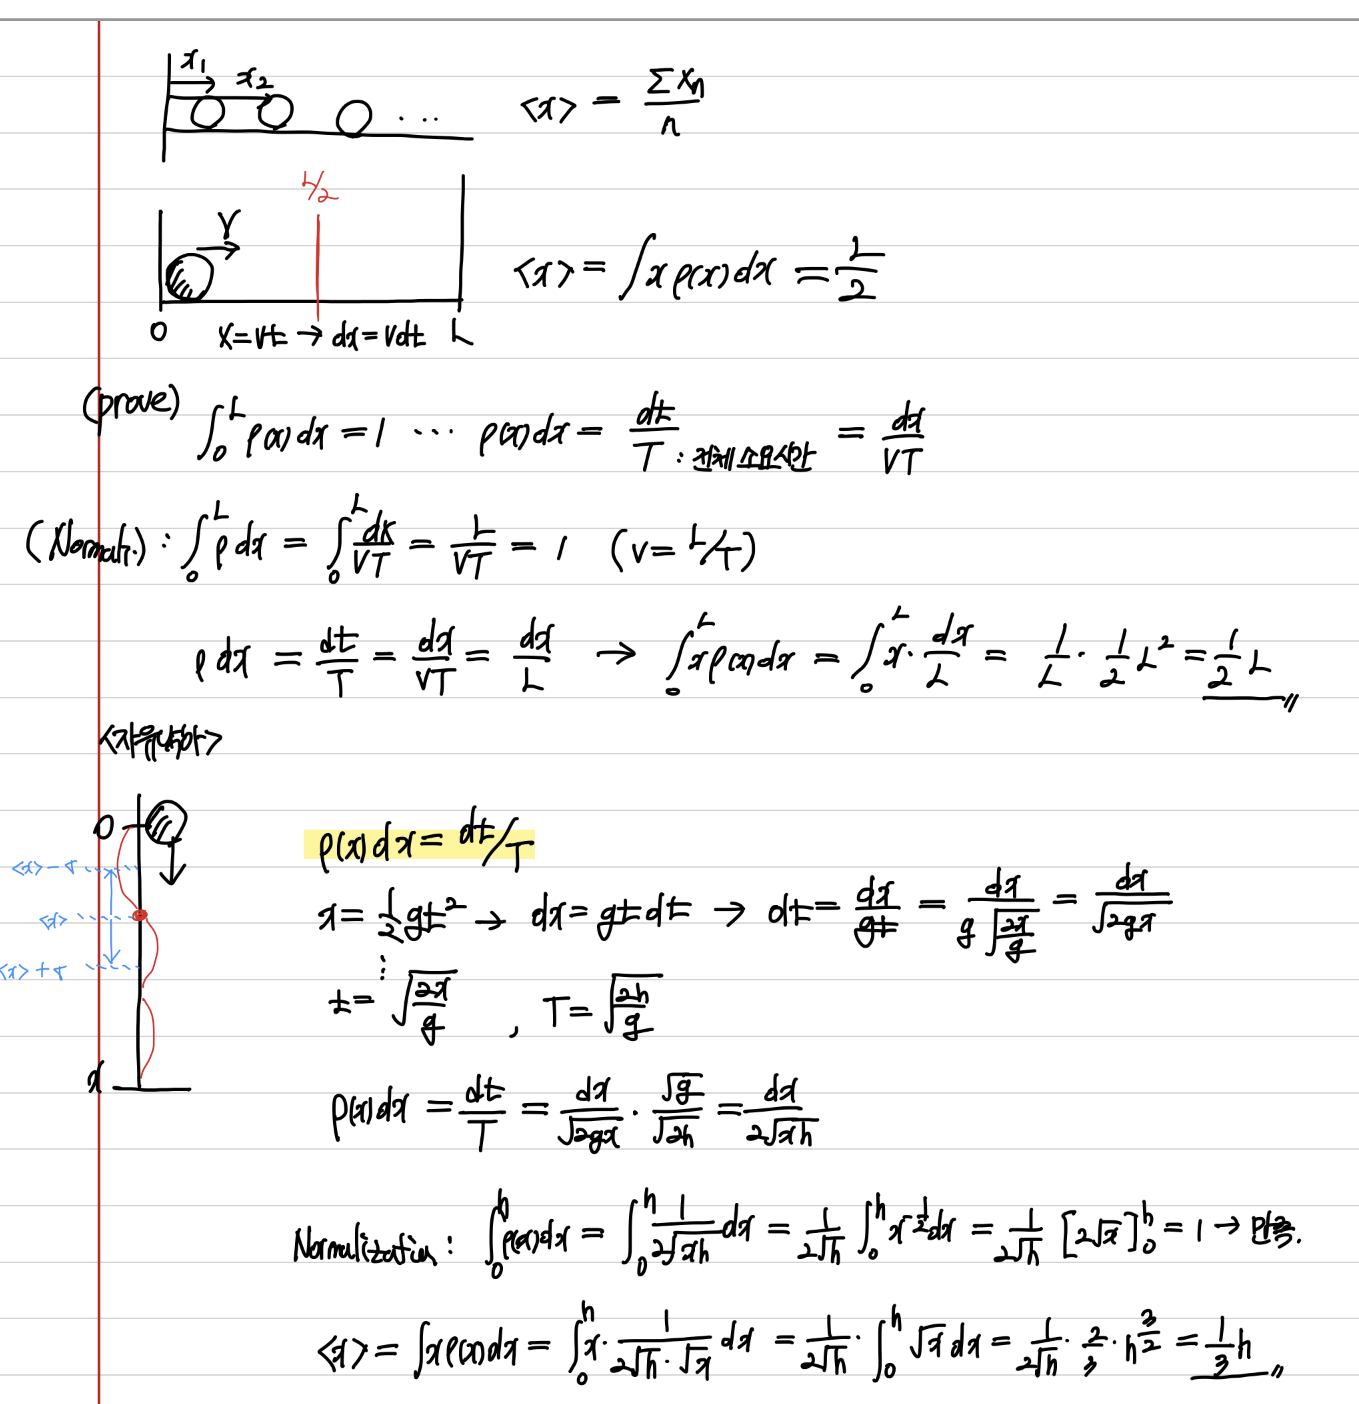 x₁
x₂
<x> = Σxₙ/n
L/2
V
<x> = ∫xρ(x)dx = L/2
0 x=vt → dx=vdt L
(prove) ∫₀ᴸ ρ(x)dx = 1 ⋯ ρ(x)dx = dt/T : 전체 소요시간 = dx/VT
(Normali.) : ∫₀ᴸ ρdx = ∫₀ᴸ dx/VT = L/VT = 1 (v=L/T)
ρdx = dt/T = dx/VT = dx/L → ∫₀ᴸ xρ(x)dx = ∫₀ᴸ x·dx/L = 1/L · 1/2 L² = 1/2 L
<자유낙하>
0
<x>-σ
<x>
<x>+σ
x
ρ(x)dx = dt/T
x = 1/2 gt² → dx = gtdt → dt = dx/gt = dx/(g√(2x/g)) = dx/√(2gx)
t = √(2x/g) , T = √(2h/g)
ρ(x)dx = dt/T = dx/√(2gx) · √g/√(2h) = dx/(2√(xh))
Normalization : ∫₀ʰ ρ(x)dx = ∫₀ʰ 1/(2√(xh)) dx = 1/(2√h) ∫₀ʰ x^(-1/2) dx = 1/(2√h) [2√x]₀ʰ = 1 → 만족.
<x> = ∫xρ(x)dx = ∫₀ʰ x· 1/(2√h·√x) dx = 1/(2√h) · ∫₀ʰ √x dx = 1/(2√h) · 2/3 · h^(3/2) = 1/3 h